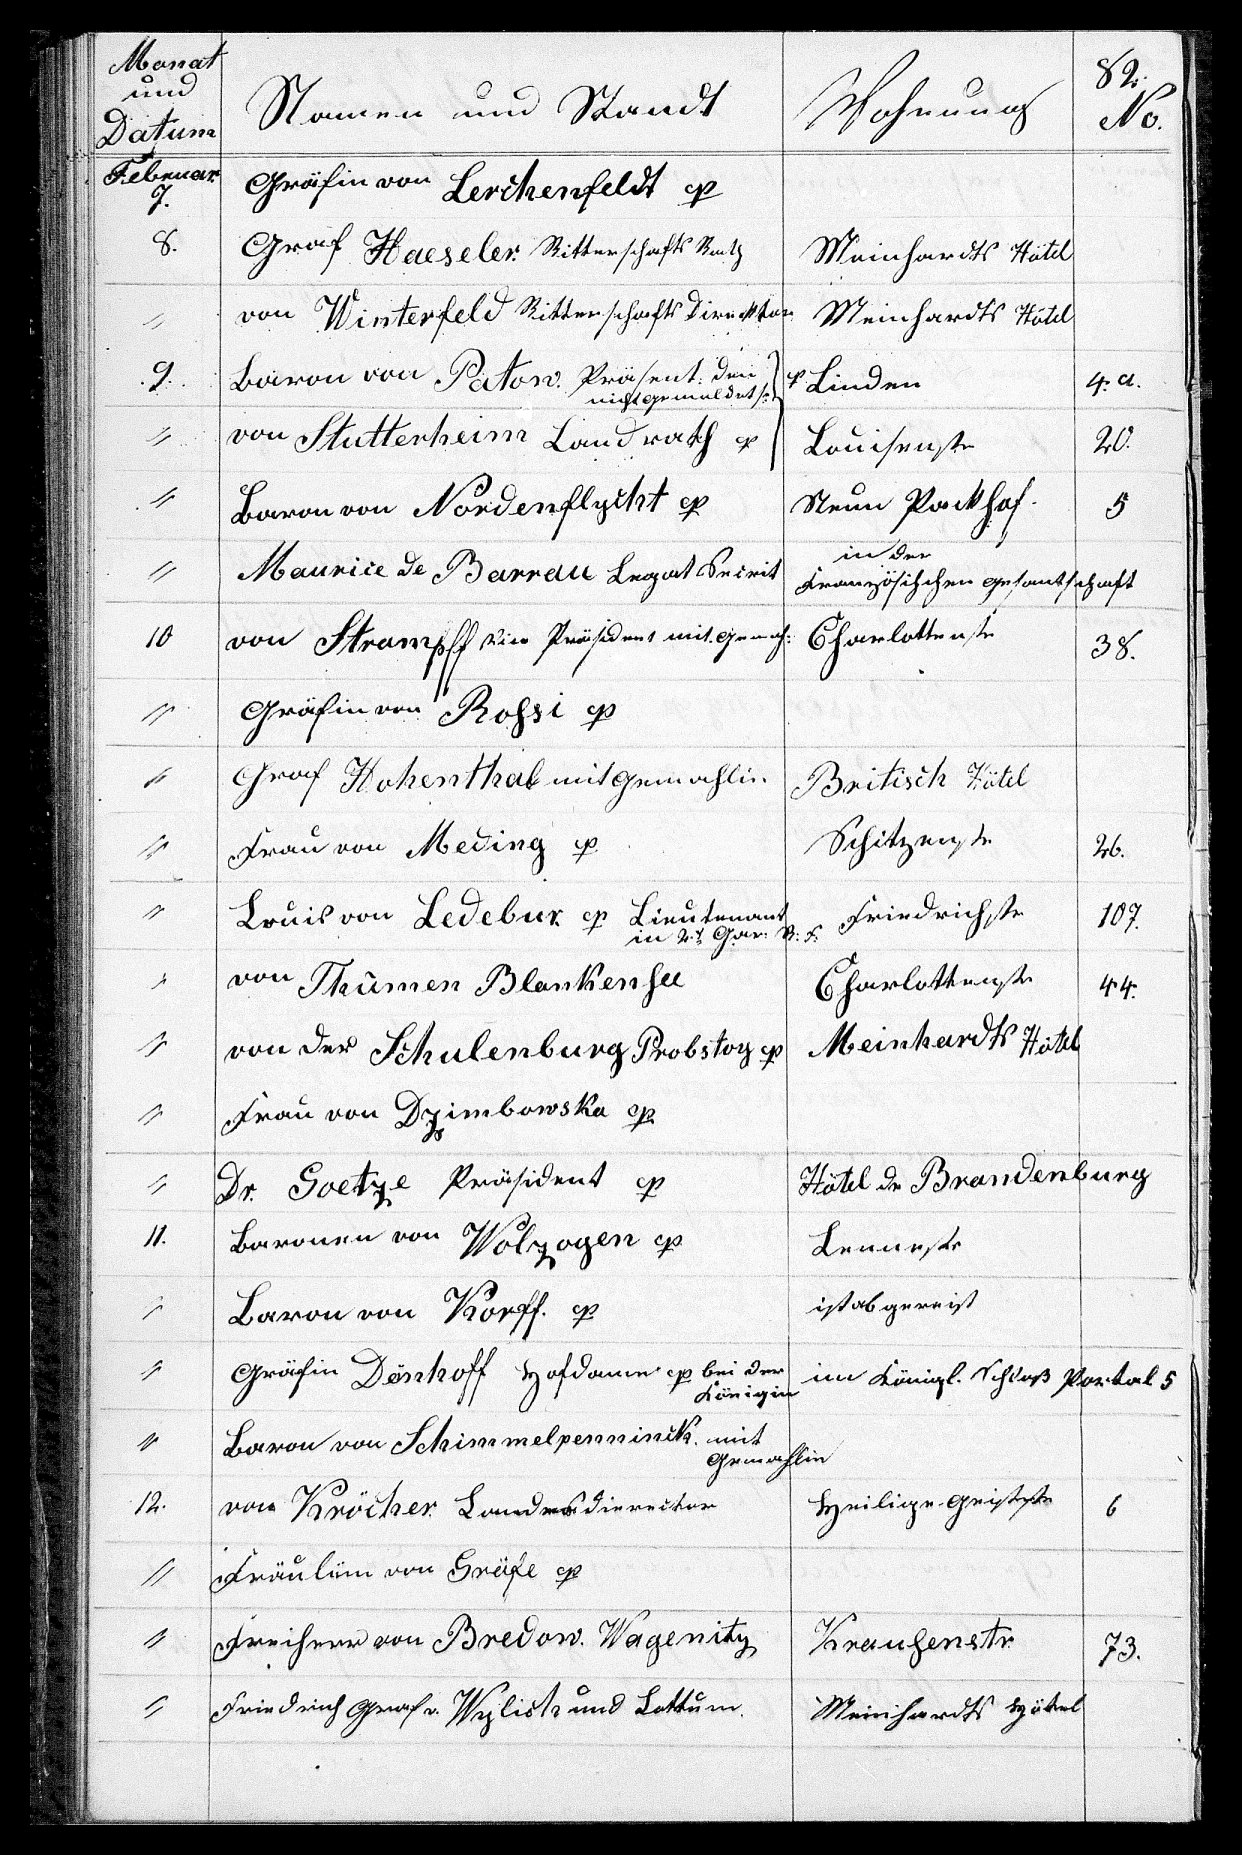 Monat und Datum Namen und Standt Wohnung 82. No.
Februar 7. Gräfin von Lerchenfeldt cp
8. Graf Haeseler. Ritterschafts Rath Meinhardts Hôtel
〃 von Winterfeld Ritterschafts Direcktor Meinhardts Hôtel
9. Baron von Patow. Präsent: den nicht gemeldet p Linden 4. a.
〃 von Stutterheim Landrath cp Louisenstr 20.
〃 Baron von Nordenflycht cp Neun Packhof. 5
〃 Maurice de Barrau Legat Secrit in der Französischen gesantschaft
10 von Strampff Vice Präsident mit. gemah: Charlottenstr 38.
〃 Gräfin von Rossi cp
〃 Graf Hohenthal mit gemahlin Britisch Hôtel
〃 Frau von Meding cp Schitzenstr 26.
〃 Louis von Ledebur. cp Lieutenant in 2.t Gar: R: F. Friedrichstr 107.
〃 von Thümen Blankensee Charlottenstr 44.
〃 von der Schulenburg Probstoy cp Meinhardts Hôtel
〃 Frau von Dzimbowska cp
〃 Dr. Goetze Präsident cp Hôtel de Brandenburg
11. Baronen von Wolzogen cp Lennestr
〃 Baron von Korff. cp ist abgereist
〃 Gräfin Dönhoff Hofdame cp bei der Königin im Königl. Schloß Portal 5
〃 Baron von Schimmelpenninck. mit Gemahlin
12. von Kröcher. Landesdierector Heilige-Geiststr 6
〃 Fräuliin von Gräfe cp
〃 Freiherr von Bredow. Wagenitz Krausenstr. 73.
〃 Friedrich Graf v. Wylich und Lottum. Meinhardts Hôtel